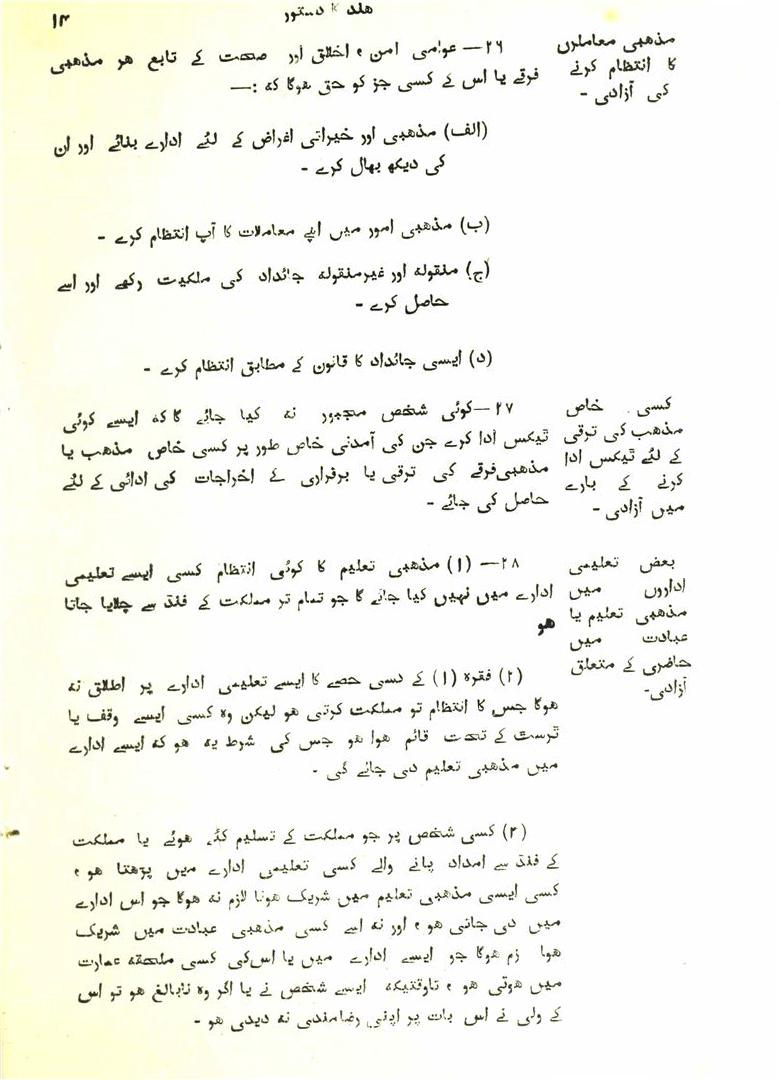 ہند کا دستور
۱۳
مذہبی معاملوں
کا انتظام کرنے
کی آزادی -
۲۶ — عوامی امن ، اخلاق اور صحت کے تابع ہر مذہبی
فرقے یا اس کے کسی جز کو حق ہوگا کہ :—
(الف) مذہبی اور خیراتی اغراض کے لئے ادارے بنائے اور ان
کی دیکھ بھال کرے -
(ب) مذہبی امور میں اپنے معاملات کا آپ انتظام کرے -
(ج) منقولہ اور غیرمنقولہ جائداد کی ملکیت رکھے اور اسے
حاصل کرے -
(د) ایسی جائداد کا قانون کے مطابق انتظام کرے -
کسی خاص
مذہب کی ترقی
کے لئے ٹیکس ادا
کرنے کے بارے
میں آزادی -
۲۷ — کوئی شخص مجبور نہ کیا جائے گا کہ ایسے کوئی
ٹیکس ادا کرے جن کی آمدنی خاص طور پر کسی خاص مذہب یا
مذہبی فرقے کی ترقی یا برقراری کے اخراجات کی ادائی کے لئے
حاصل کی جائے -
بعض تعلیمی
اداروں میں
مذہبی تعلیم یا
عبادت میں
حاضری کے متعلق
آزادی-
۲۸ — (۱) مذہبی تعلیم کا کوئی انتظام کسی ایسے تعلیمی
ادارے میں نہیں کیا جائے گا جو تمام تر مملکت کے فنڈ سے چلایا جاتا
ہو
(۲) فقرہ (۱) کے کسی حصے کا ایسے تعلیمی ادارے پر اطلاق نہ
ہوگا جس کا انتظام تو مملکت کرتی ہو لیکن وہ کسی ایسے وقف یا
ٹرسٹ کے تحت قائم ہوا ہو جس کی شرط یہ ہو کہ ایسے ادارے
میں مذہبی تعلیم دی جائے گی -
(۳) کسی شخص پر جو مملکت کے تسلیم کئے ہوئے یا مملکت
کے فنڈ سے امداد پانے والے کسی تعلیمی ادارے میں پڑھتا ہو ،
کسی ایسی مذہبی تعلیم میں شریک ہونا لازم نہ ہوگا جو اس ادارے
میں دی جاتی ہو ، اور نہ اسے کسی مذہبی عبادت میں شریک
ہونا زم ہوگا جو ایسے ادارے میں یا اس کی کسی ملحقہ عمارت
میں ہوتی ہو ، تاوقتیکہ ایسے شخص نے یا اگر وہ نابالغ ہو تو اس
کے ولی نے اس بات پر اپنی رضامندی نہ دیدی ہو -